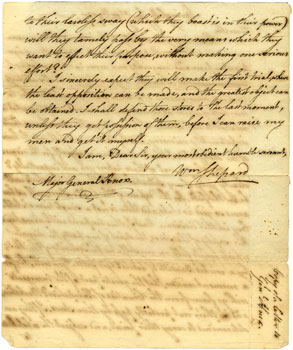 to their lawless sway (which they boast is in their power)
will they tamely pass by the very means which they
want to effect their purpose, without making one serious
effort?
I sincerely expect they will make the first trial where
the least opposition can be made, and the greatest object can
be obtained. I shall defend these stores to the last moment,
unless they get possession of them, before I can raise my
men and get it myself.
I am, Dear Sir, your most obedient humble servant,
Wm Shepard
Major General Knox
Copy of a letter to
Genl Knox